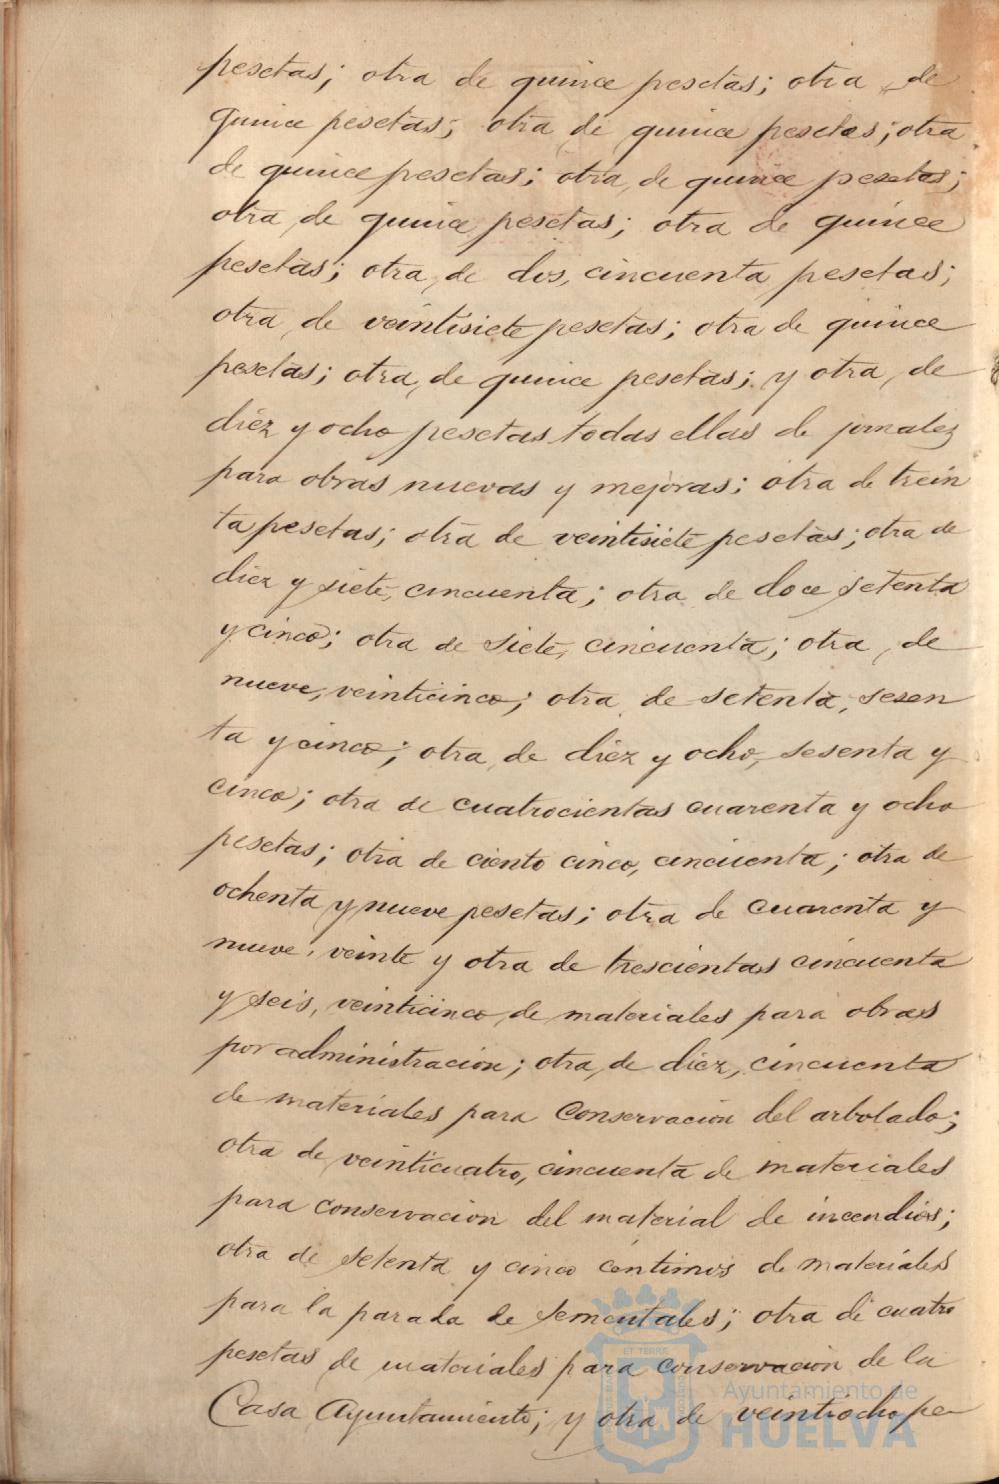 pesetas; otra de quince pesetas; otra de
quince pesetas; otra de quince pesetas; otra
de quince pesetas; otra de quince pesetas;
otra de quince pesetas; otra de quince
pesetas; otra de dos, cincuenta pesetas;
otra de veintisiete pesetas; otra de quince
pesetas; otra de quince pesetas; y otra de
diez y ocho pesetas todas ellas de jornalez
para obras nuevas y mejoras; otra de trein
ta pesetas; otra de veintisiete pesetas; otra de
diez y siete, cincuenta; otra de doce setenta
y cinco; otra de siete, cincuenta; otra de
nueve, veinticinco; otra de setenta, sesen
ta y cinco; otra de diez y ocho, sesenta y
cinco; otra de cuatrocientas cuarenta y ocho
pesetas; otra de ciento cinco, cincuenta; otra de
ochenta y nueve pesetas; otra de cuarenta y
nueve, veinte y otra de trescientas cincuenta
y seis, veinticinco de materiales para obras
por administracion; otra de diez, cincuenta
de materiales para conservacion del arbolado;
otra de veinticuatro, cincuenta de materiales
para conservacion del material de incendios;
otra de setenta y cinco centimos de materiales
para la parada de sementales; otra de cuatro
pesetas de materiales para conservacion de la
Casa Ayuntamiento; y otra de veintiocho pe-
ET TERRE
Ayuntamiento de
HUELVA